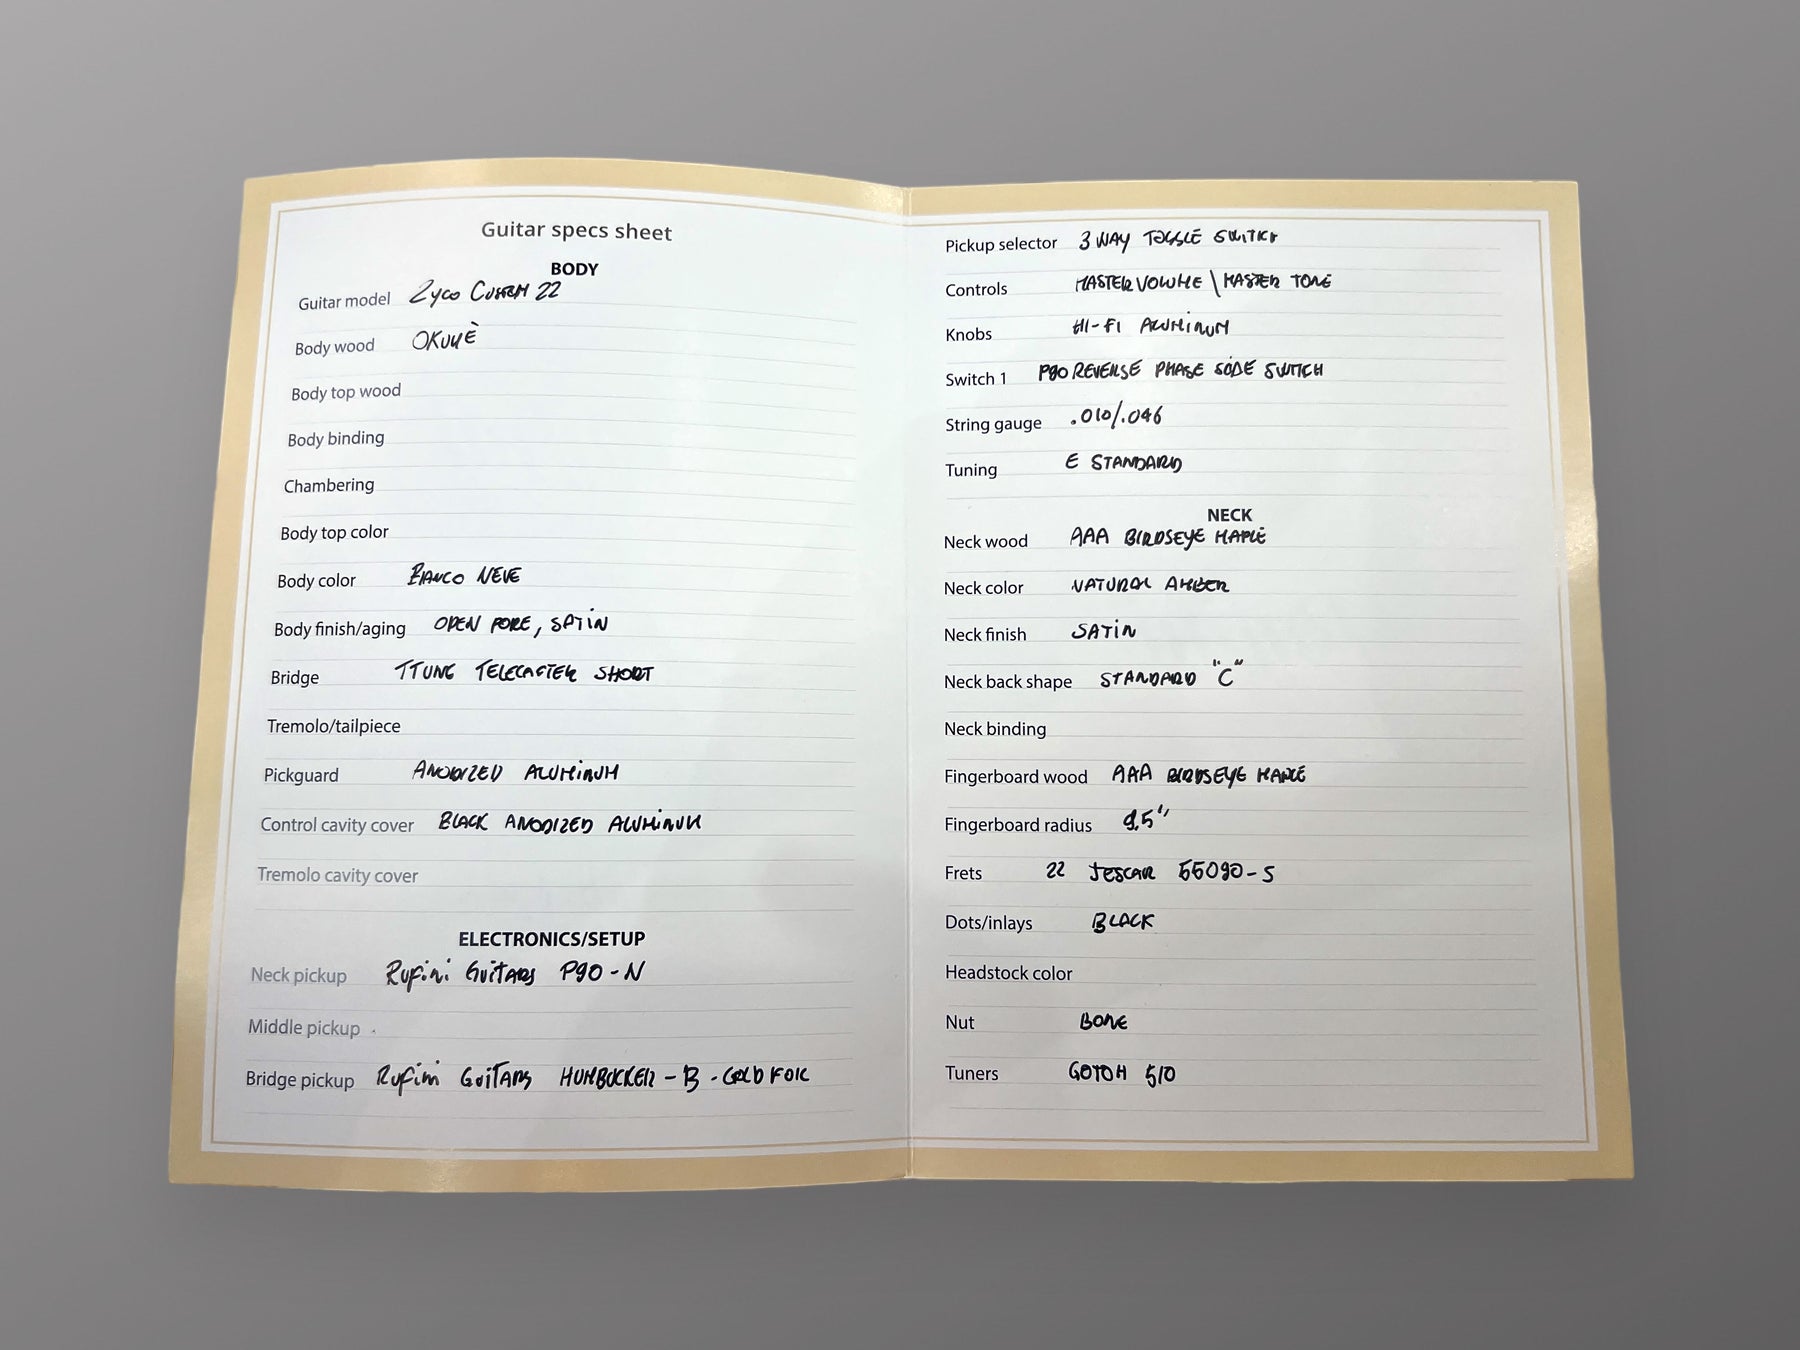 Guitar specs sheet
BODY
Guitar model Zyco Custom 22
Body wood OKUMÈ
Body top wood
Body binding
Chambering
Body top color
Body color BIANCO NEVE
Body finish/aging OPEN PORE, SATIN
Bridge TTUNE TELECASTER SHORT
Tremolo/tailpiece
Pickguard ANODIZED ALUMINUM
Control cavity cover BLACK ANODIZED ALUMINUM
Tremolo cavity cover
ELECTRONICS/SETUP
Neck pickup Rufini GUITARS P90-N
Middle pickup
Bridge pickup Rufini GUITARS HUMBUCKER-B-GOLD FOIL
Pickup selector 3 WAY TOGGLE SWITCH
Controls MASTER VOLUME \ MASTER TONE
Knobs HI-FI ALUMINUM
Switch 1 P90 REVERSE PHASE SIDE SWITCH
String gauge .010/.046
Tuning E STANDARD
NECK
Neck wood AAA BIRDSEYE MAPLE
Neck color NATURAL AMBER
Neck finish SATIN
Neck back shape STANDARD "C"
Neck binding
Fingerboard wood AAA BIRDSEYE MAPLE
Fingerboard radius 9,5"
Frets 22 JESCAR 55090-S
Dots/inlays BLACK
Headstock color
Nut BONE
Tuners GOTOH 510